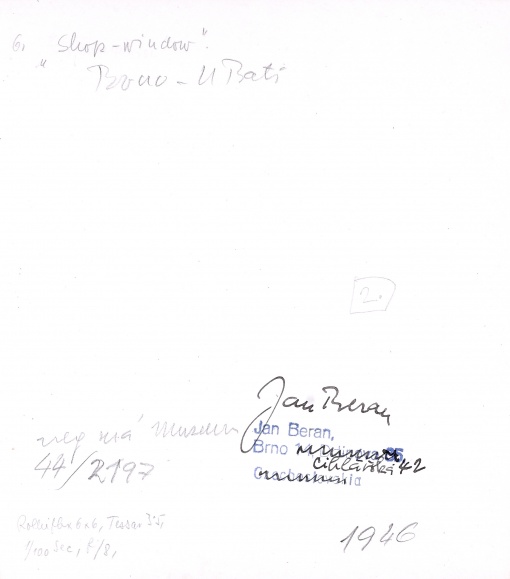 6. "Shop-window".
Brno - U Bati
2.
Jan Beran
neg má Museum
Jan Beran,
Brno
Cihlářská 42
44/2197
Czechoslovakia
Rolleiflex 6x6, Tessar 3.5
1/100 sec, f/8,
1946